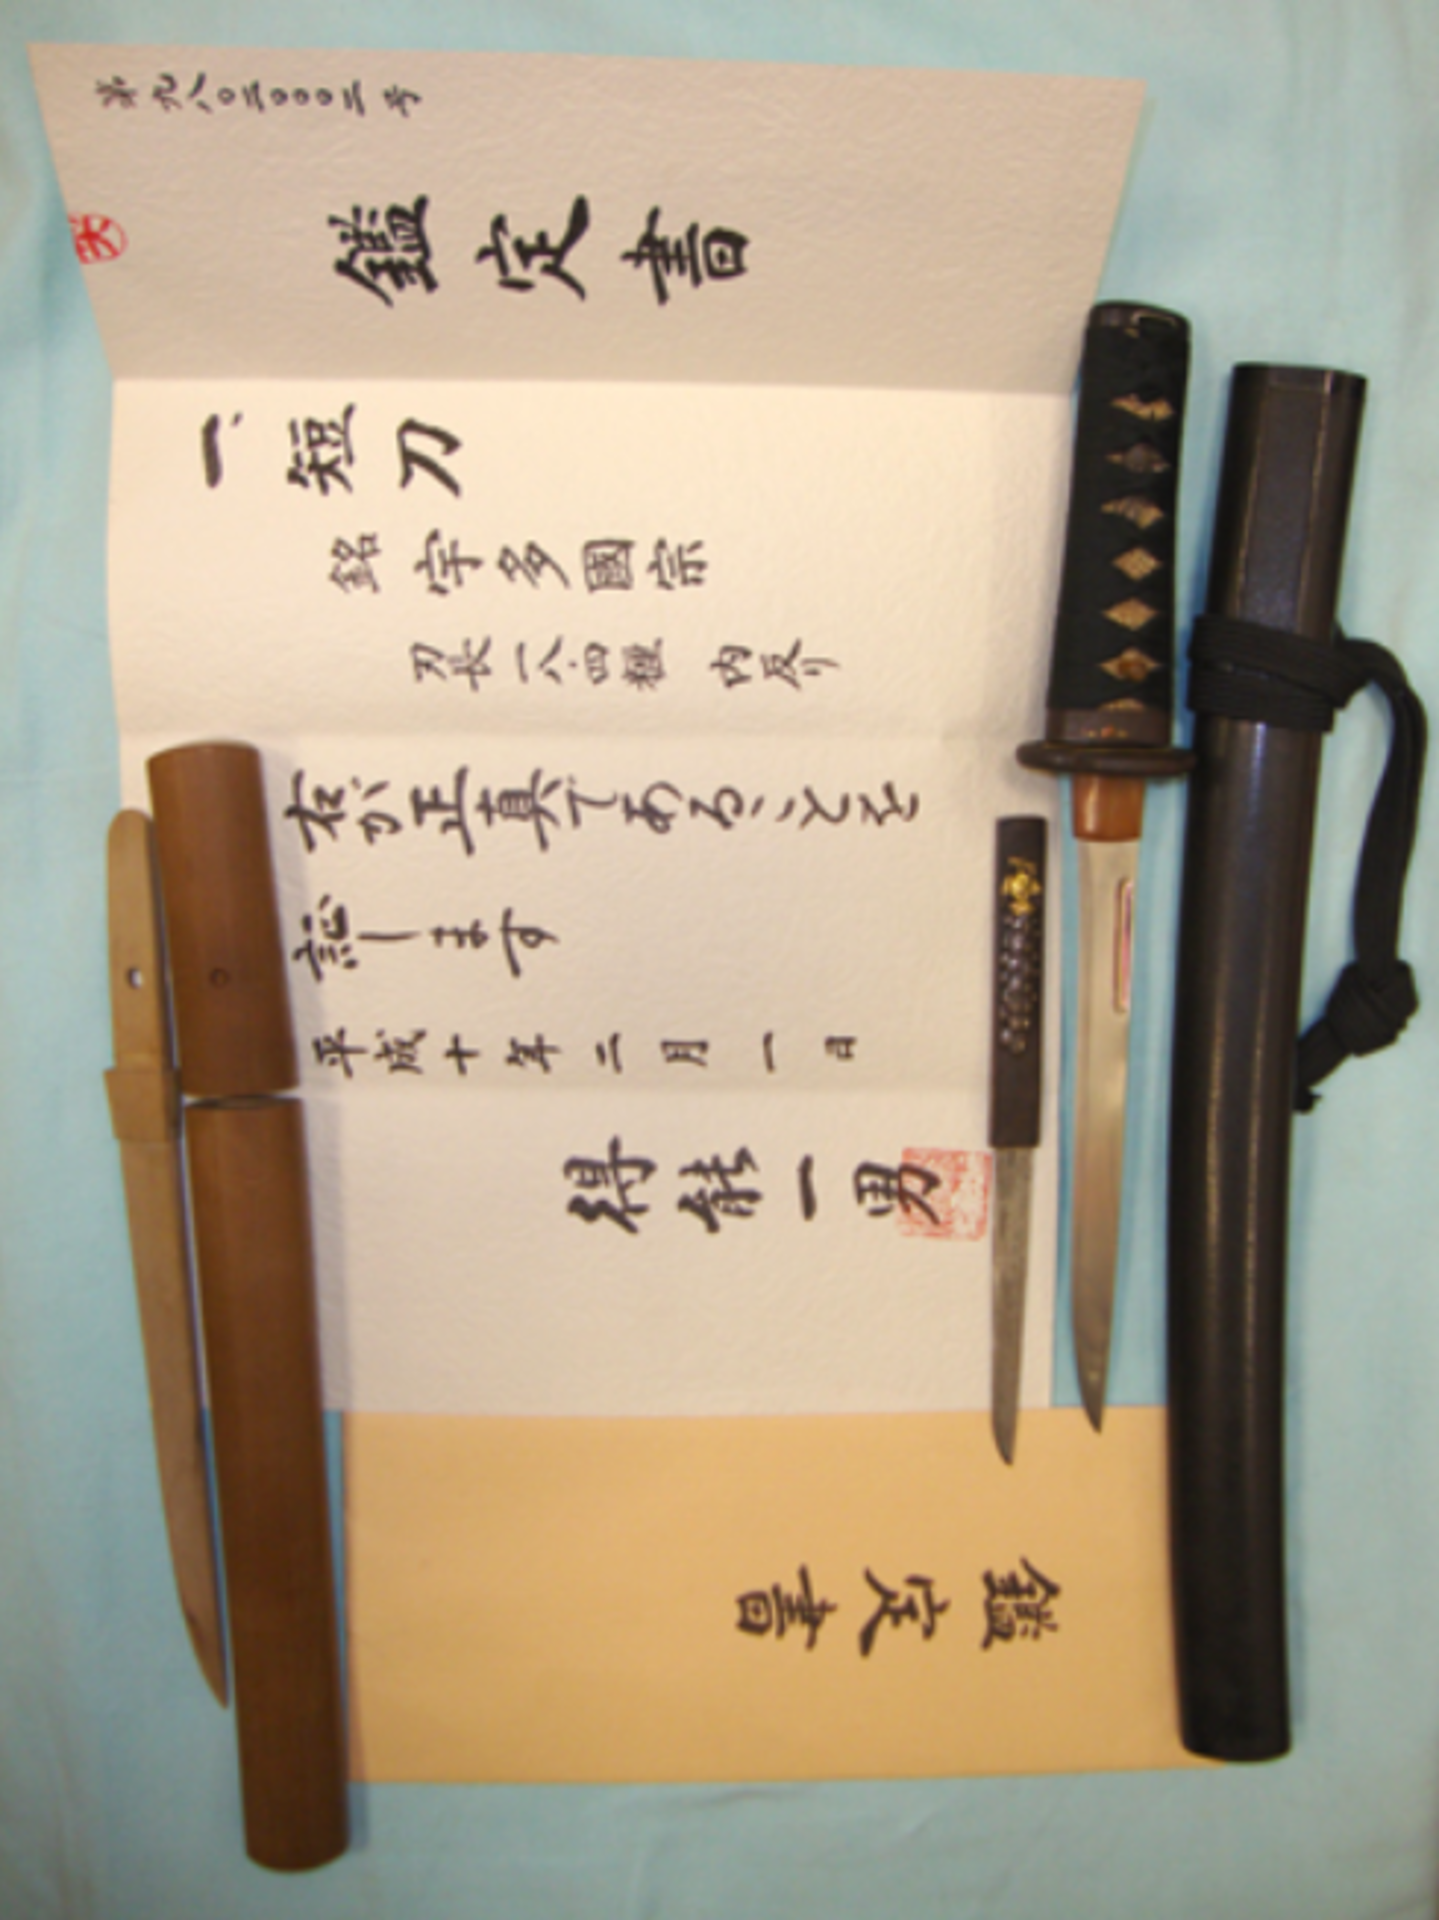 第九八〇二〇〇〇二号
鑑定書
一、短刀
銘 宇多國宗
刃長一八.四糎 内反り
右が正真であることを
証します
平成十年二月一日
得能一男
鑑定書